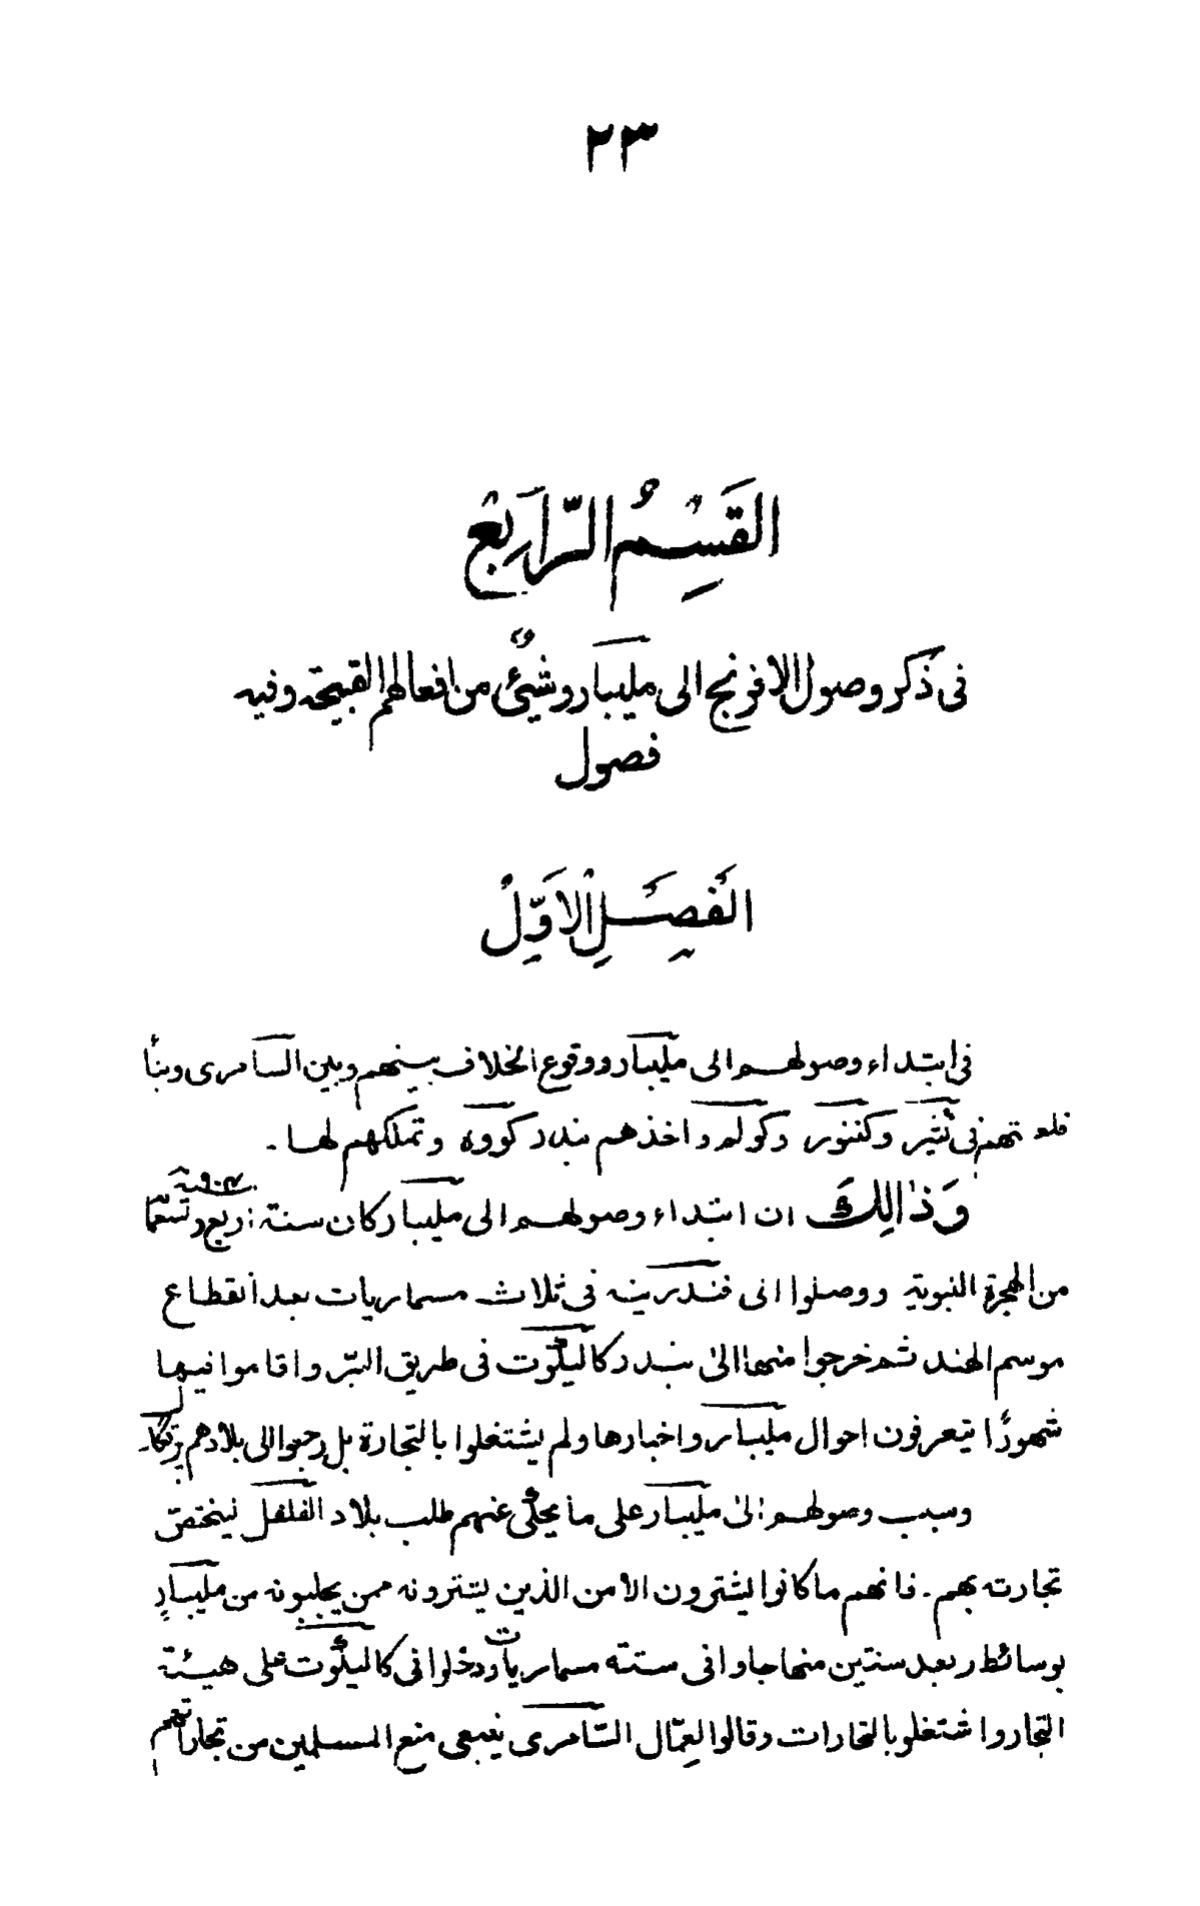 ٢٣
القَسِمُ الرَّابِعُ
فى ذكر وصول الافرنج الى مليبار وشيئ من افعالهم القبيحة وفيه
فصول
الفَصِلُ الاَوَّلُ
فى ابتداء وصولهم الى مليبار ووقوع الخلاف بينهم وبين السامرى وبنأ
قلعتهم فى كشير وكننور وكولم واخذهم بندر كووه وتملكهم لها.
وَذالِكَ ان ابتداء وصولهم الى مليبار كان سنة اربع وتسعمأ
من الهجرة النبوية ووصلوا الى فندرينه فى ثلاث مسماريات بعد انقطاع
موسم الهند ثم خرجوا منها الىٰ بندر كاليكُوت فى طريق البّر واقاموا فيها
شهورًا يتعرفون احوال مليبار واخبارها ولم يشتغلوا بالتجارة بل رجعوا الى بلادهم پرتكال
وسبب وصولهم الىٰ مليبار على ما يحكى عنهم طلب بلاد الفلفل ليختص
تجارته بهم. فانهم ما كانوا يشترون الا من الذين يشترونه ممن يجلبونه من مليبار
بوسائط وبعد سنتين منها جاوا فى ستة مسماريات ودخلوا فى كاليكُوت على هيئة
التجار واشتغلو بالتجارات وقالوا لِعمّال السّامرى ينبغى منع المسلمين من تجاراتهم